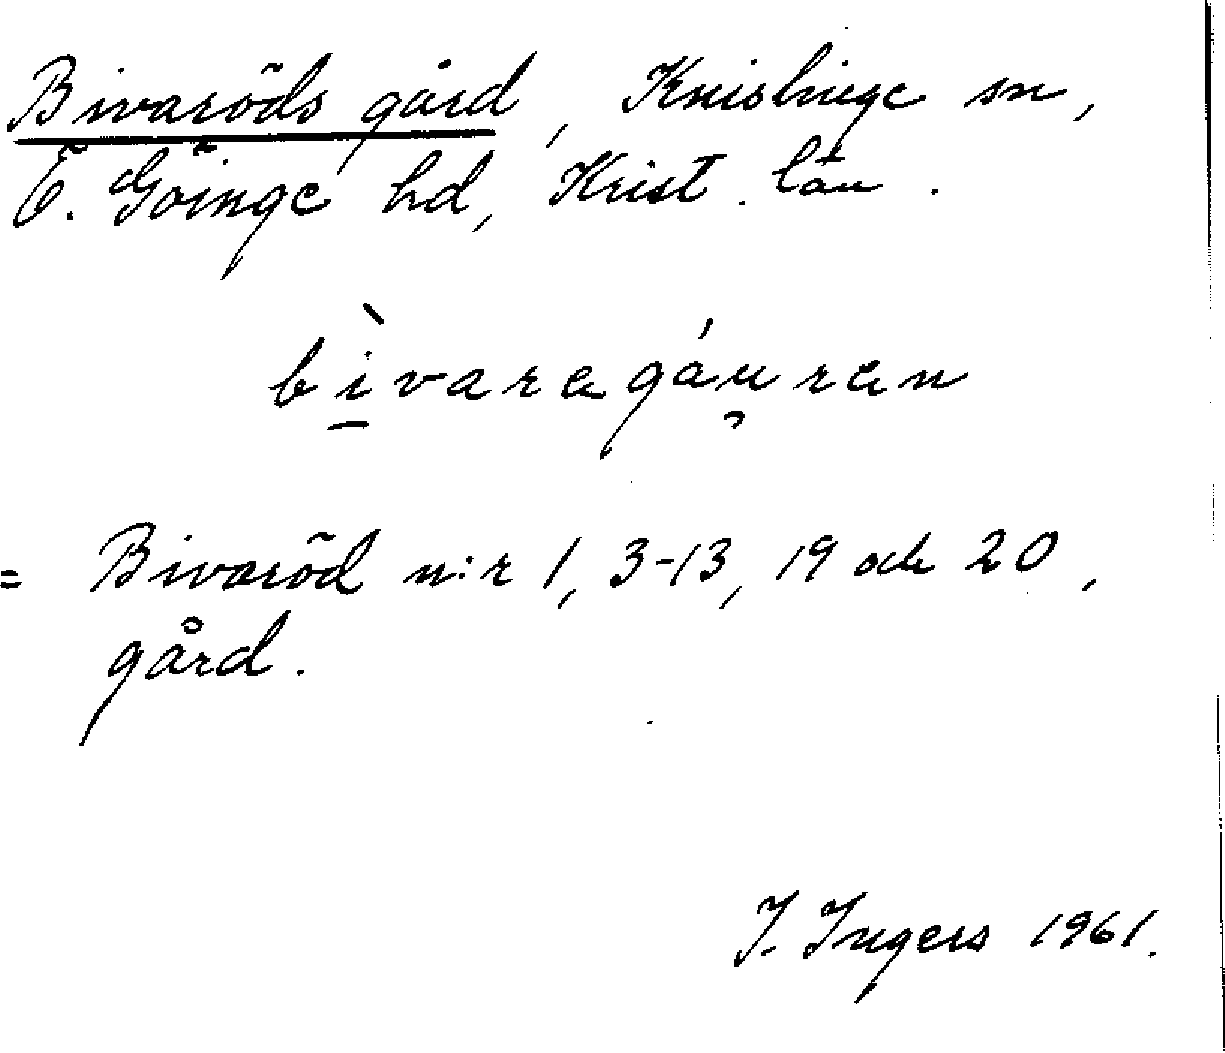 Bivaröds gård, Knislinge sn,
Ö. Göinge hd, Krist. län.
bìvaragáuran
= Bivaröd n:r 1, 3-13, 19 och 20,
gård.
I. Ingers 1961.